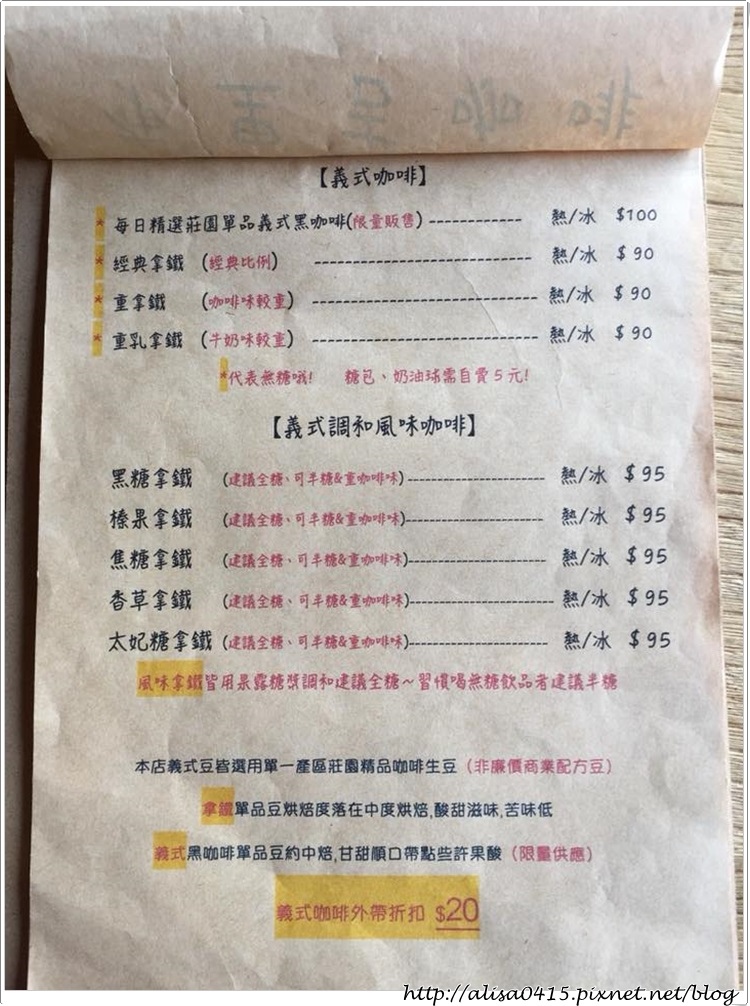 【義式咖啡】
* 每日精選莊園單品義式黑咖啡(限量販售) ------------- 熱/冰 $100
* 經典拿鐵 (經典比例) ------------------------------- 熱/冰 $90
* 重拿鐵 (咖啡味較重) -------------------------------- 熱/冰 $90
* 重乳拿鐵 (牛奶味較重) -------------------------------- 熱/冰 $90
*代表無糖哦! 糖包、奶油球需自費5元!
【義式調和風味咖啡】
黑糖拿鐵 (建議全糖、可半糖&重咖啡味)-------------------- 熱/冰 $95
榛果拿鐵 (建議全糖、可半糖&重咖啡味)-------------------- 熱/冰 $95
焦糖拿鐵 (建議全糖、可半糖&重咖啡味)-------------------- 熱/冰 $95
香草拿鐵 (建議全糖、可半糖&重咖啡味)-------------------- 熱/冰 $95
太妃糖拿鐵 (建議全糖、可半糖&重咖啡味)-------------------- 熱/冰 $95
風味拿鐵皆用果露糖漿調和建議全糖~習慣喝無糖飲品者建議半糖
本店義式豆皆選用單一產區莊園精品咖啡生豆(非廉價商業配方豆)
拿鐵單品豆烘焙度落在中度烘焙,酸甜滋味,苦味低
義式黑咖啡單品豆約中焙,甘甜順口帶點些許果酸(限量供應)
義式咖啡外帶折扣 $20
http://alisa0415.pixnet.net/blog